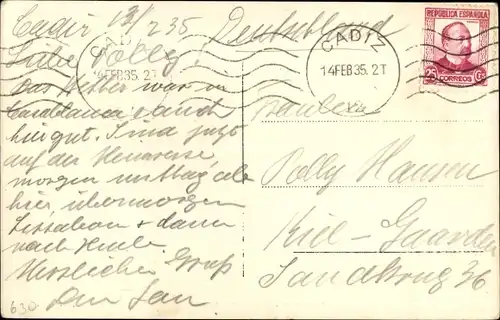 Cadix 13/2 35
Deutschland
Liebe Polly,
Das Wetter war in
Casablanca auch
hier gut. Sind jetzt
auf der Heimreise,
morgen mittag ab
hier, übermorgen
Lissabon + dann
nach
Herzlichen Gruß
Dein Jan
630
CADIZ
14 FEB 35. 2T
CADIZ
14 FEB 35. 2T
REPUBLICA ESPAÑOLA
25 Cs
CORREOS
Fräulein
Polly Hansen
Kiel-Gaarden
Sandkrug 36